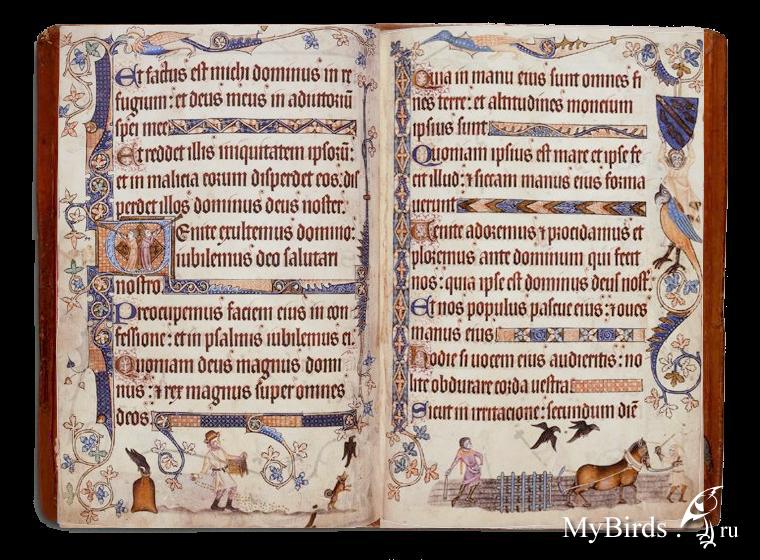 Et factus est michi dominus in re
fugium: et deus meus in adiutoriū
spei mee
Et reddet illis iniquitatem ipsorū:
et in malicia eorum disperdet eos: dis
perdet illos dominus deus noster.
Uenite exultemus domino:
iubilemus deo salutari
nostro
Preocupemus faciem eius in con
fessione: et in psalmis iubilemus ei.
Quoniam deus magnus domi
nus: ⁊ rex magnus super omnes
deos
Quia in manu eius sunt omnes fi
nes terre: et altitudines moncium
ipsius sunt
Quoniam ipsius est mare et ipse fe
cit illud: ⁊ siccam manus eius forma
uerunt
Uenite adoremus ⁊ procidamus et
ploremus ante dominum qui fecit
nos: quia ipse est dominus deus nost
Et nos populus pascue eius: ⁊ oues
manus eius
Hodie si uocem eius audieritis: no
lite obdurare corda uestra
Sicut in irritacione: secundum diē
MyBirds.ru